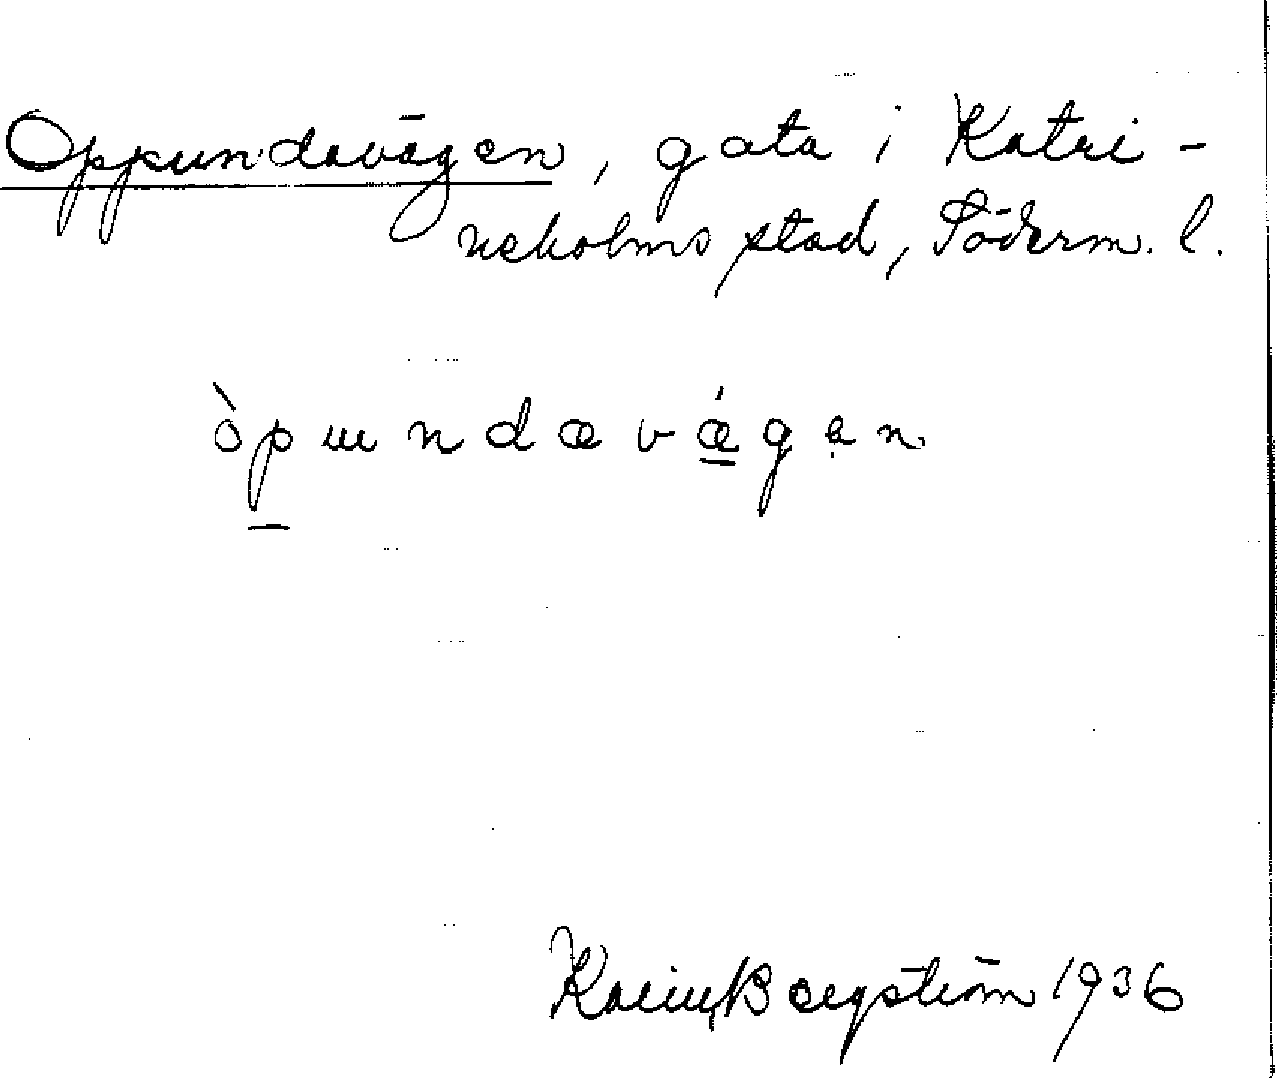 Oppundavägen, gata i Katri-
neholms stad, Söderm. l.
òpundavǽgen
Karin Bergström 1936